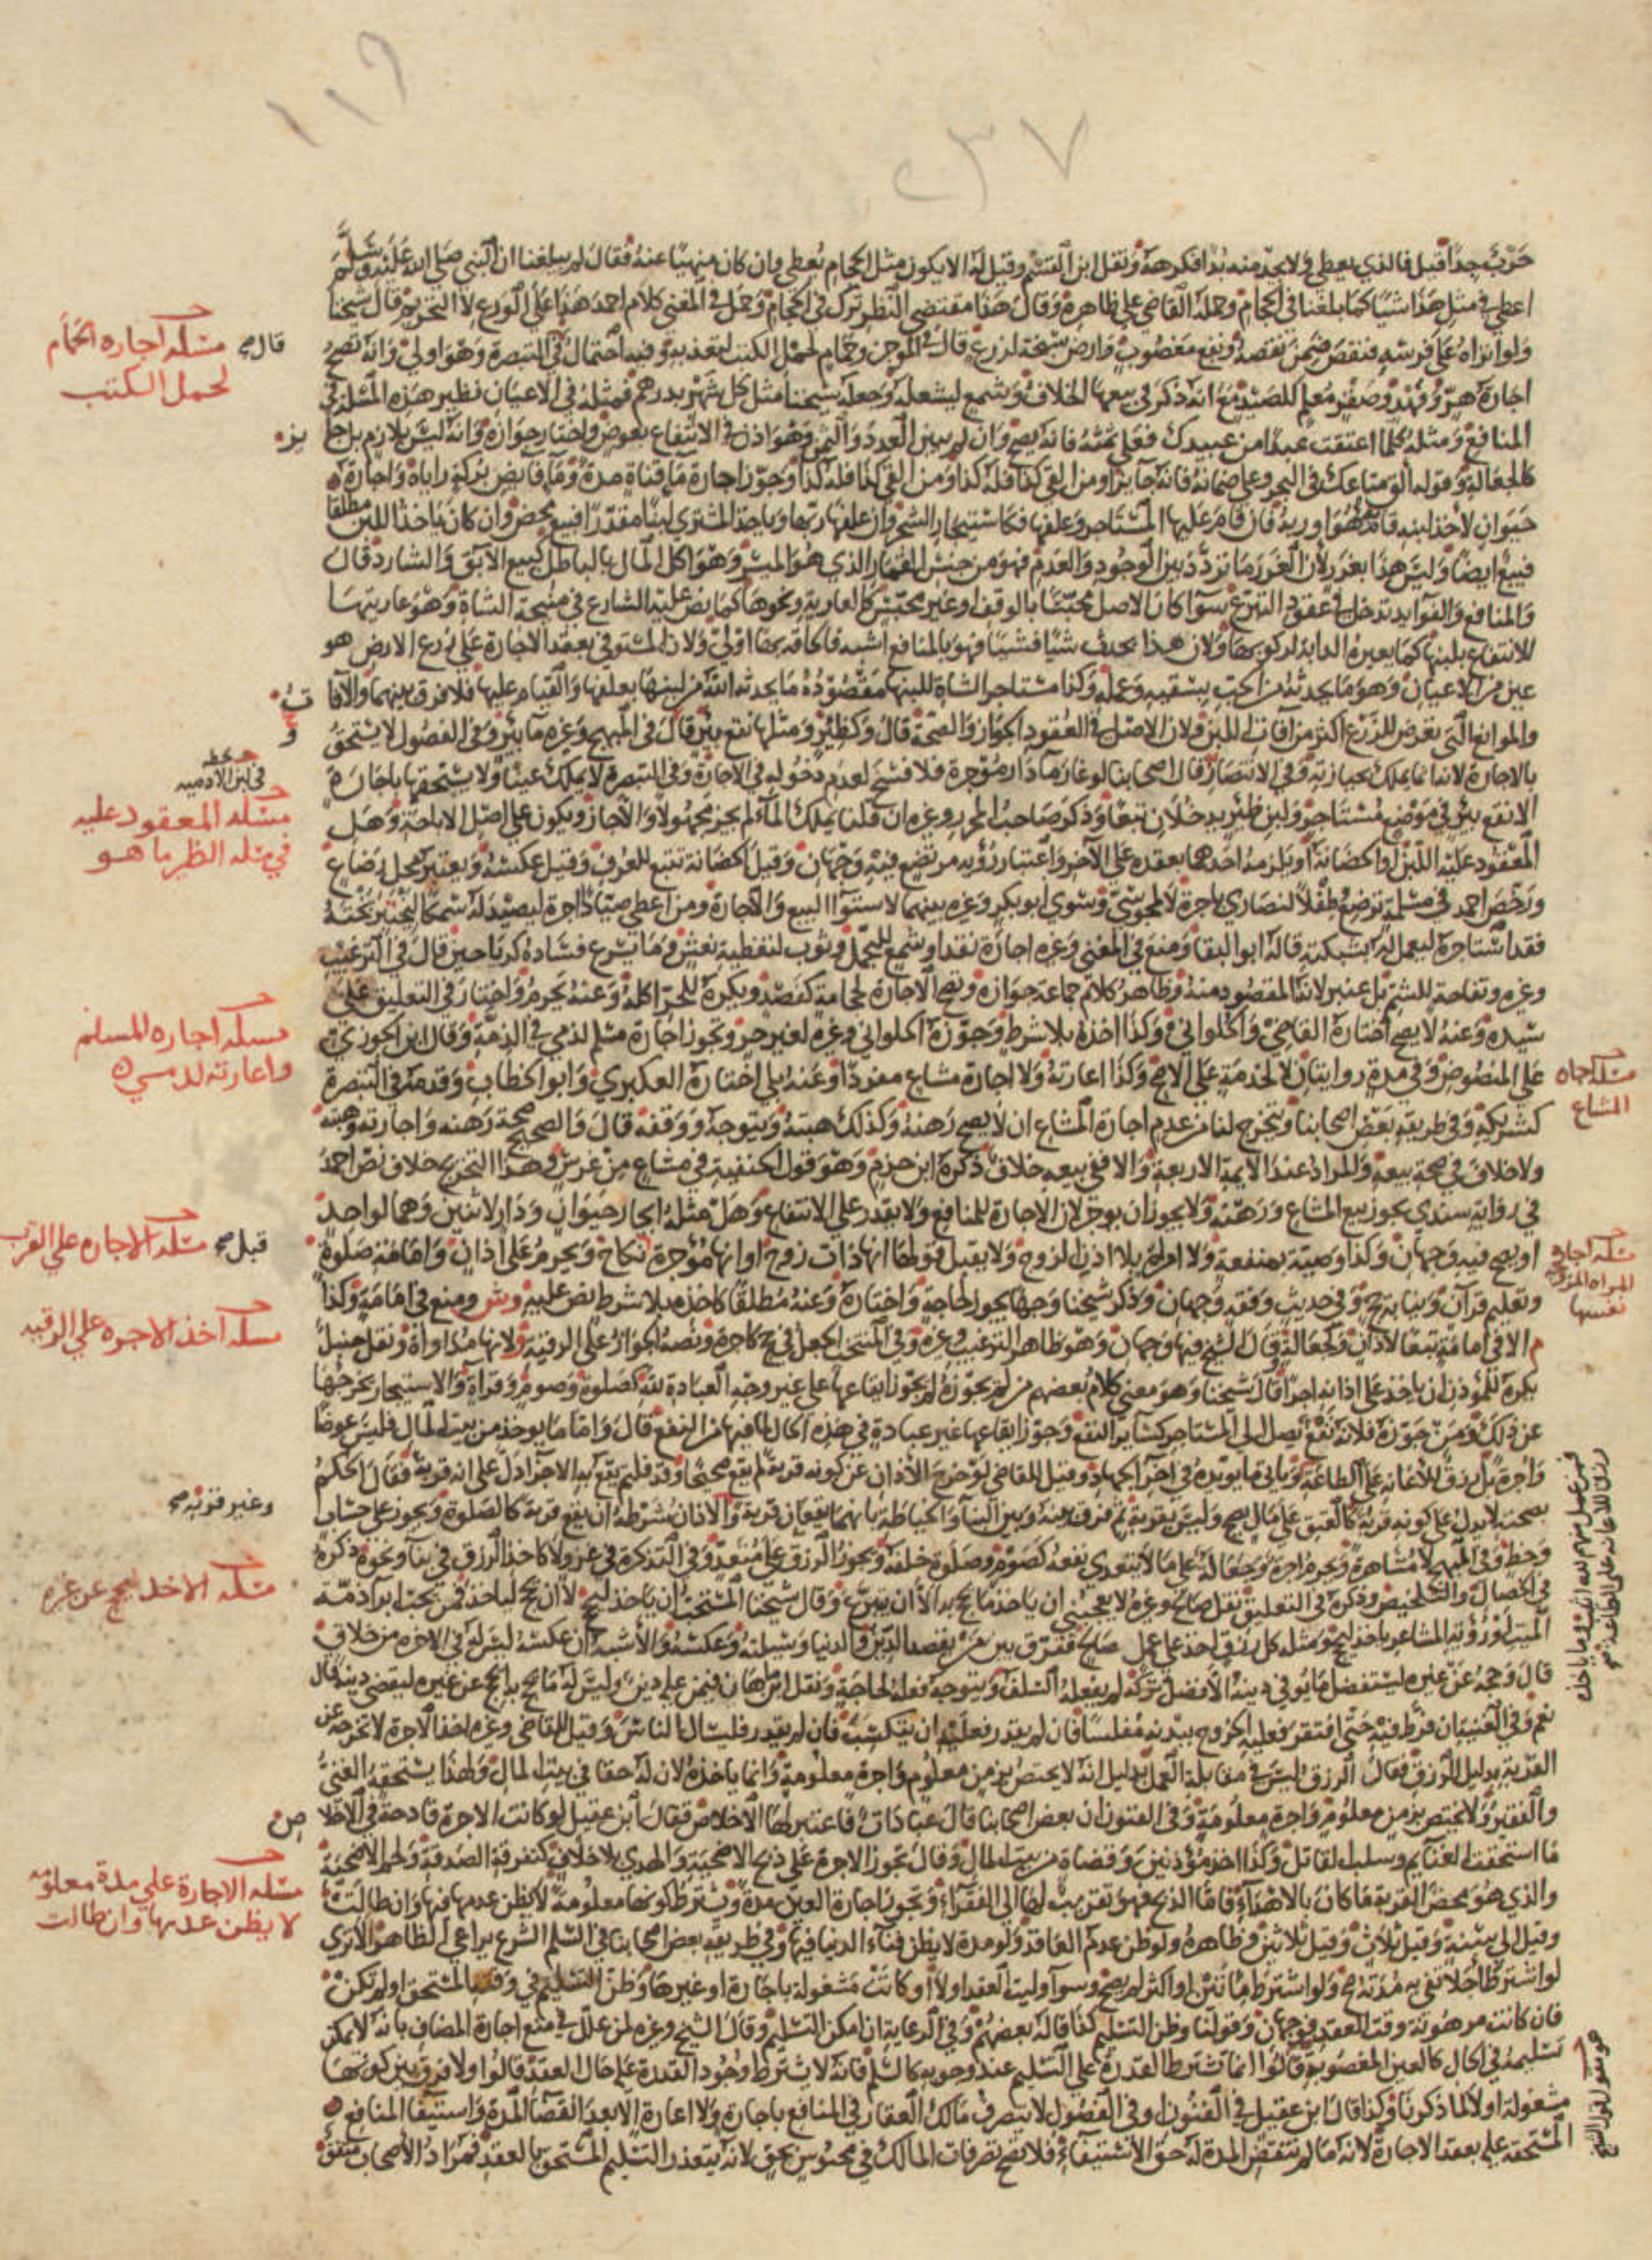 ١١٩
٢٣٧
قيل فالذي يعطي ولا يجد منه بدا فكرهه ونقل ابن القسم وقيل له الا يكون مثل الحجام يعطى وان كان منهيا عنه فقال لم يبلغنا ان النبي صلى الله عليه وسلم
اعطى في مثل هذا شيئا كما بلغنا في الحجام وحمله القاضي على ظاهره وقال هذا مقتضى النظر ترك في الحجام وحمل في المغني كلام احمد هذا على الورع لا التحريم قال شيخنا
ولو انزاه على فرسه فنقص ضمن نقصه ونفع مغصوب وارض سبخة لزرع قال في الموجز وحمام لحمل الكتب لتعذيبه وفيه احتمال في التبصرة وهو اولى وانه تصح
اجارة هر وفهد وصقر معلم للصيد مع انه ذكر في بيعها الخلاف وشمع ليشعله وجعله شيخنا مثل كل شهر بدرهم فمثله في الاعيان نظير هذه المسئلة في
المنافع ومثله كلما اعتقت عبدا من عبيدك فعلي ثمنه فانه يصح وان لم يبين العدد والثمن وهو اذن في الانتفاع بعوض واختار جوازه وانه ليس بلازم بل جا
يز
كالجعالة وكقوله الق متاعك في البحر وعلي ضمانه فانه جايز ومن القى كذا فله كذا ومن القى كذا فله كذا وجوز اجارة ماء قناة مدة وماء فايض بركة راياه واجارة
حيوان لاخذ لبنه قام به هو او ربه فان قام عليها المستاجر وعلفها فكاستيجار الشجر وان علفها ربها وياخذ المشتري لبنا مقدرا فبيع محض وان كان ياخذ اللبن مطلقا
فبيع ايضا وليس هذا بغرر لان الغرر ما تردد بين الوجود والعدم فهو من جنس القمار الذي هو الميسر وهو اكل المال بالباطل كبيع الابق والشارد قال
والمنافع والفوايد تدخل في عقود التبرع سوا كان الاصل محبسا بالوقف او غير محبس كالعارية ونحوها كما نص عليه الشارع في منيحة الشاة وهو عاريتها
للانتفاع بلبنها كما يعيره الدابة لركوبها ولان هذا يحدث شيئا فشيئا فهو بالمنافع اشبه فالحاقه بها اولى ولان المستوفى بعقد الاجارة على زرع الارض هو
عين من الاعيان وهو ما يحدثه من الحب بسقيه وعمله وكذا مستاجر الشاة للبنها مقصوده ما يحدثه الله من لبنها بعلفها والقيام عليها فلا فرق بينهما والافا
ت
والموانع التي تعرض للزرع اكثر من افات اللبن ولان الاصل في العقود الجواز والصحة قال وكظير ومثلها نقع بير قال في المبهج وغيره ماء بير وفي الفصول لا يستحق
بالاجارة لانه انما يملك بحيازته وفي الانتصار قال اصحابنا لو غار ماء دار موجرة فلا فسخ لعدم دخوله في الاجارة وفي التبصرة لا يملك عينا ولا يستحقها باجارة
الا نقع بير في موضع مستاجر ولبن ظير يدخلان تبعا وذكر صاحب المحرر وغيره ان قلنا يملك الماء لم يجز مجهولا والا جاز ويكون على اصل الاباحة وهل
المعقود عليه اللبن او الحضانة او يلزمه احدهما بعقده على الاخر واعتبار رؤيه مرتضع فيه وجهان وقيل الحضانة تتبع للعرف وقيل عكسه ويعتبر محل رضاع
ورخص احمد في مسلمة ترضع طفلا لنصارى باجرة لا لمجوسي وسوى ابو بكر وغيره بينهما لاستوا البيع والاجارة ومن اعطى صيادا اجرة ليصيد له سمكا ليختبر بخته
فقد استاجره ليعمل له بشبكته قاله ابو البقا ومنع في المغني وغيره اجارة نقد او شمع للتجمل وثوب لتغطية نعش وما يسرع فساده كرياحين قال في الترغيب
وغيره وتفاحة للشم بل عنبر لانه المقصود منه وظاهر كلام جماعة جوازه وتصح الاجارة لحجامة كفصد ويكره للحر اكله وعنه يحرم واختار في التعليق على
سيده وعنه لا يصح اختاره القاضي والحلواني وكذا اخذه بلا شرط وجوزه الحلواني وغيره لغير حر وتجوز اجارة مسلم لذمي في الذمة وقال ابن الجوزي
على المنصوص وفي مدة روايتان لا لخدمة على الاصح وكذا اعارته ولا اجارة مشاع مفردا وعنه بلى اختاره العكبري وابو الخطاب وقدمه في التبصرة
كشريكه وفي طريقة بعض اصحابنا ويتخرج لنا من عدم اجارة المشاع ان لا يصح رهنه وكذلك هبته ويتوجه ووقفه قال والصحيح صحة رهنه واجارته وهبته
ولا خلاف في صحة بيعه والمراد عند الايمة الاربعة والا ففي بيعه خلاف ذكره ابن حزم وهو قول الحنفية في مشاع من غرس وهذا التخريج خلاف نص احمد
في رواية سندي يجوز بيع المشاع ورهنه ولا يجوز ان يوجر لان الاجارة للمنافع ولا يقدر على الانتفاع وهل مثله ايجار حيوان ودار لاثنين وهما لواحد
او يصح فيه وجهان وكذا وصية بمنفعة ولا امراة بلا اذن الزوج ولا يقبل قولها انها ذات زوج او انها موجرة نكاح ويحرم على اذان وامامة صلوة
وتعليم قران ونيابة حج وفي حديث وفقه وجهان وذكر شيخنا وجها يجوز لحاجة واختاره وعنه مطلقا كاخذه بلا شرط نص عليه وش ومنع في امامة وكذا
م الا في امامة تبعا لاذان وكجعالة قال الشيخ فيها وجهان وهو ظاهر الترغيب وغيره وفي المنتخب الجعل في حج كاجرة ونصه الجواز على الرقية لانها مداواة ونقل حنبل
يكره للموذن ان ياخذ على اذانه اجرا قال شيخنا وهو معنى كلام بعضهم من لم يجوزه لم يجوز ايقاعها على غير وجه العبادة لله كصلوة وصوم وقراة والاستيجار يخرجها
عن ذلك ومن جوزه فلانه نفع يصل الى المستاجر كساير النفع وجوز ايقاعها غير عبادة في هذه الحال لما فيها من النفع قال واما ما يوخذ من بيت المال فليس عوضا
واجرة بل رزق للاعانة على الطاعة وياتي ما يويده في اخر الجهاد وقيل للقاضي لو خرج الاذان عن كونه قربة لم يقع صحيحا وقد فلم يقع به الاجزا دل على انه قربة فقال الحكم
بصحته لا يدل على كونه قربة كالعتق على مال يصح وليس بقربة ثم فرق بينه وبين البنا والخياطة بانهما يقعان قربة والاذان شرطه ان يقع قربة كالصلوة ويجوز على حساب
وخط وفي المبهج لا مشاهرة ويحرم اجرة وجعالة على ما لا يتعدى نفعه كصوم وصلوة خلفه ويجوز الرزق على متعد وفي التذكرة في غزو لا كاخذ الرزق في بنا ونحوه ذكره
في الخصال والتلخيص وذكره في التعليق نقل صالح وغيره لا يعجبني ان ياخذ ما يحج به الا ان يتبرع وقال شيخنا المستحب ان ياخذ ليحج لا ان يحج لياخذ فمن يحب ابراء ذمة
الميت او رؤية المشاعر ياخذ ليحج ومثله كل رزق اخذ على عمل صالح ففرق بين من يقصد الدين والدنيا وسيلته وعكسه والاشبه ان عكسه ليس له في الاخرة من خلاق
قال وحجه عن غيره ليستفضل ما يوفي دينه الافضل تركه لم يفعله السلف ويتوجه فعله لحاجة ونقل ابن ماهان فيمن عليه دين وليس له ما يحج به ايحج عن غيره ليقضي دينه قال
نعم وفي الغنية ان فرط فيه حتى افتقر فعليه الخروج ببدنه مفلسا فان لم يقدر فعليه ان يكتسب فان لم يقدر فليسال الناس وقيل للقاضي وغيره اخذ الاجرة لا تخرجه عن
القربة بدليل الرزق فقال الرزق ليس في مقابلة العمل بدليل انه لا يختص بزمن معلوم واجرة معلومة وانما ياخذه لان له حقا في بيت المال ولهذا يستحقه الغني
والفقير ولا يختص بزمن معلوم واجرة معلومة وفي الفنون ان بعض اصحابنا قال عبادات فاعتبر لها الاخلاص فقال ابن عقيل لو كانت الاجرة قادحة في الاخلا
ص
ما استحقت الغنايم وسلب لقاتل وكذا اخذ موذنين وقضاة من بيت المال وقال تجوز الاجرة على ذبح الاضحية والهدي بلا خلاف كتفرقة الصدقة ولحم الاضحية
والذي هو محض القربة ما كان بالاهداء فاما الذبح فهو تقريب لها الى الفقراء وتجوز اجارة العين مدة ويشترط كونها معلومة لا يظن عدمها فيها وان طالت
وقيل الى سنة وقيل ثلاث وقيل ثلاثين وظاهره ولو ظن عدم العاقد ولو مدة لا يظن فناء الدنيا فيها وفي طريقة بعض اصحابنا في السلم الشرع يراعي الظاهر الا ترى
لو اشترط اجلا تفي به مدته صح ولو اشترط مائتين او اكثر لم يصح وسوا وليت العقد اولا او كانت مشغولة باجارة او غيرها وظن التسليم في وقته المستحق او لم تكن
فان كانت مرهونة وقت العقد فوجهان وقولنا وظن التسليم كذا قاله بعضهم وفي الرعاية ان امكن التسليم وقال الشيخ وغيره لمن علل في منع اجارة المضاف بانه لا يمكن
تسليمه في الحال كالعين المغصوبة قالوا انما تشترط القدرة على التسليم عند وجوبه كالسلم فانه لا يشترط وجود القدرة على حال العقد قالوا ولا فرق بين كونها
مشغولة او لا لما ذكرنا وكذا قال ابن عقيل في الفنون او في الفصول لا يتصرف مالك العقار في المنافع باجارة ولا اعارة الا بعد انقضا المدة واستيفا المنافع
المستحقة عليه بعقد الاجارة لانه ما لم تنقض المدة له حق الاستيفاء فلا تصح تصرفات المالك في محبوس بحق لانه يتعذر التسليم المستحق بالعقد فمراد الاصحاب متفق
قال صح
مسئلة اجارة الحمام
لحمل الكتب
في لبن الادمية
مسئلة المعقود عليه
في مسئلة الظير ما هو
مسئلة اجاره المسلم
واعارته لذمي
مسئلة اجارة
المشاع
قيل صح
مسئلة الاجاره على القرب
مسئلة اجارة
المراة المزوجة
نفسها
مسئلة اخذ الاجرة على الرقية
وغير قربة صح
مسئلة الاخذ ليحج عن غيره
رزق للاعانة على الطاعة
فمن عمل منهم لله اثيب وما ياخذه
مسئلة الاجارة على مدة معلومة
لا يظن عدمها وان طالت